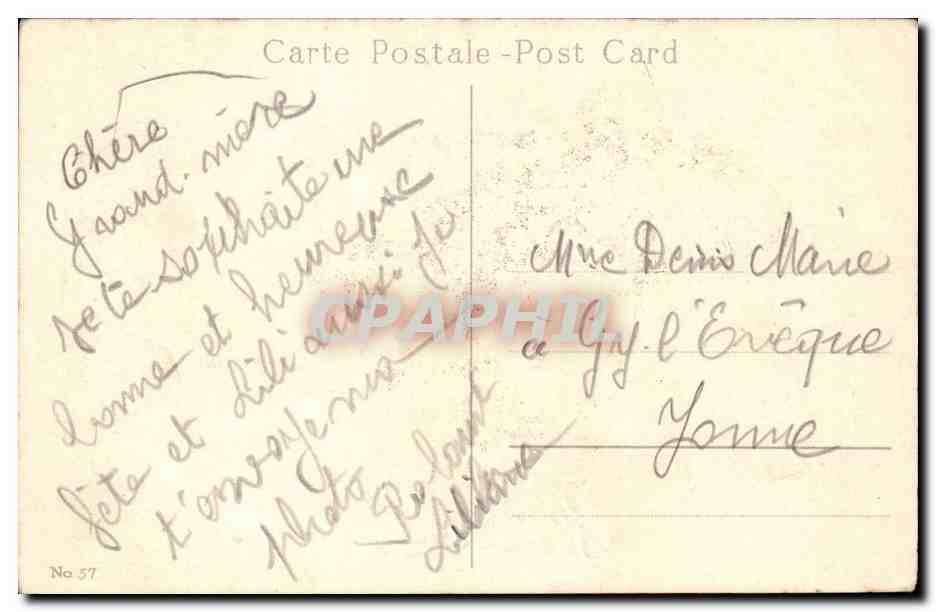 Carte Postale - Post Card
Chère
Grand. mère
Je te souhaite une
bonne et heureuse
fête et Lili aussi je
t'envoye nos
photo
Roland
Liliane
Mme Denis Marie
a Gy. l'Evêque
Yonne
CPAPHIL
No 57